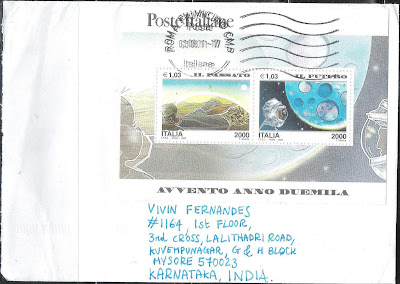 Poste Italiane
ROMA
CMP
Italiane
€ 1,03 IL PASSATO
ITALIA 2000
€ 1,03 IL FUTURO
ITALIA 2000
AVVENTO ANNO DUEMILA
VIVIN FERNANDES
#1164, 1st FLOOR,
3rd CROSS, LALITHADRI ROAD,
KUVEMPUNAGAR, G & H BLOCK
MYSORE 570023
KARNATAKA, INDIA.